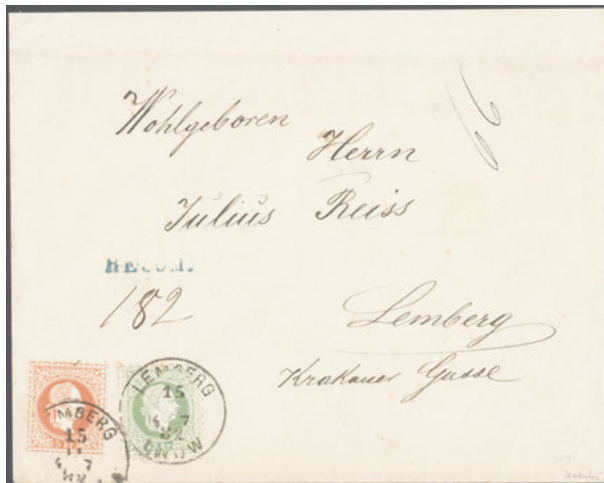 Wohlgeboren
Herrn
Julius Reiss
RECOM.
182
Lemberg
Krakauer Gasse
LEMBERG
15
4-7
82
LWÓW
EMBERG
15